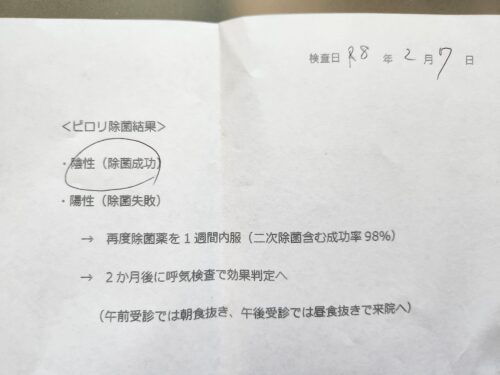 検査日 R8 年 2 月 7 日
＜ピロリ除菌結果＞
・陰性（除菌成功）
・陽性（除菌失敗）
→ 再度除菌薬を1週間内服（二次除菌含む成功率98%）
→ 2か月後に呼気検査で効果判定へ
（午前受診では朝食抜き、午後受診では昼食抜きで来院へ）